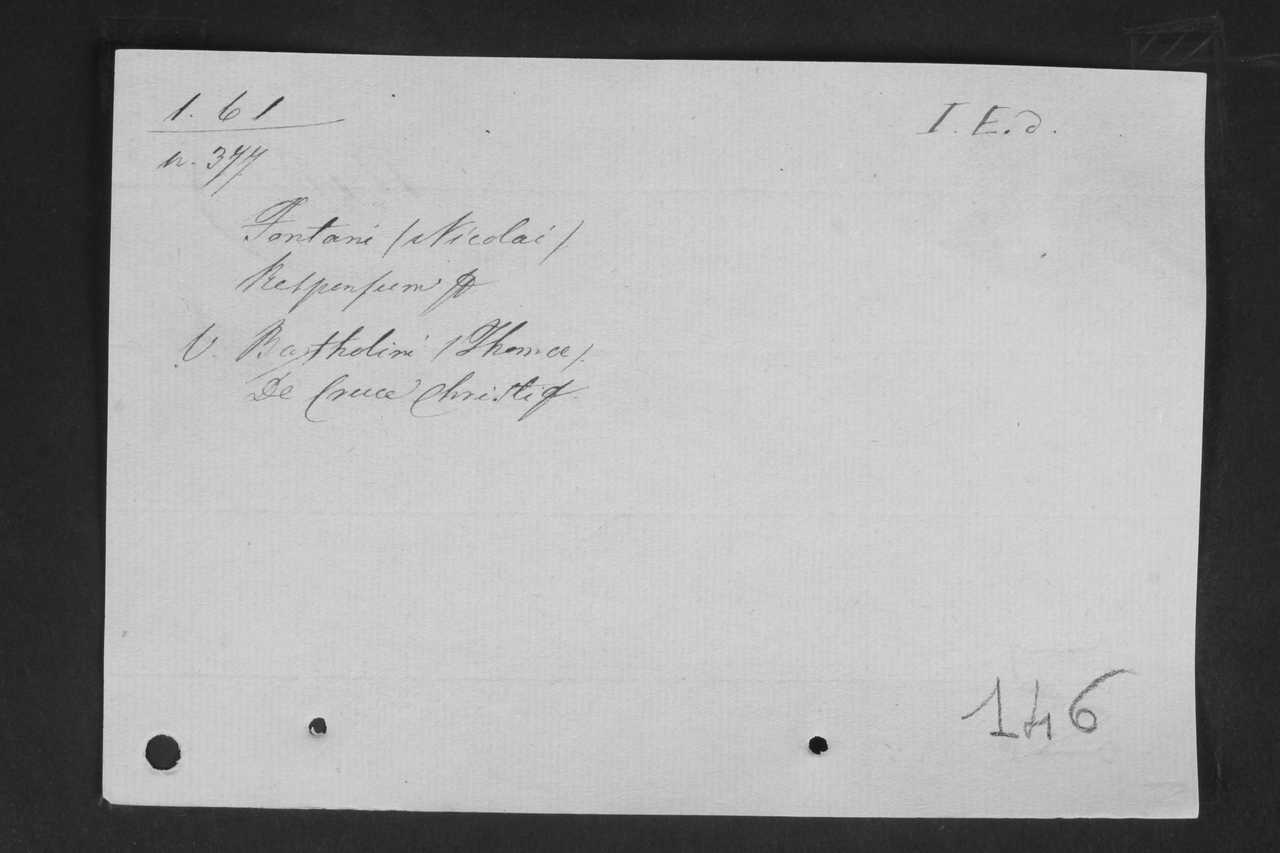 1. 61
n. 377
I. E. d.
Fontani (Nicolai)
Responsum
V. Bartholini (Thomae).
De Cruce Christi
146